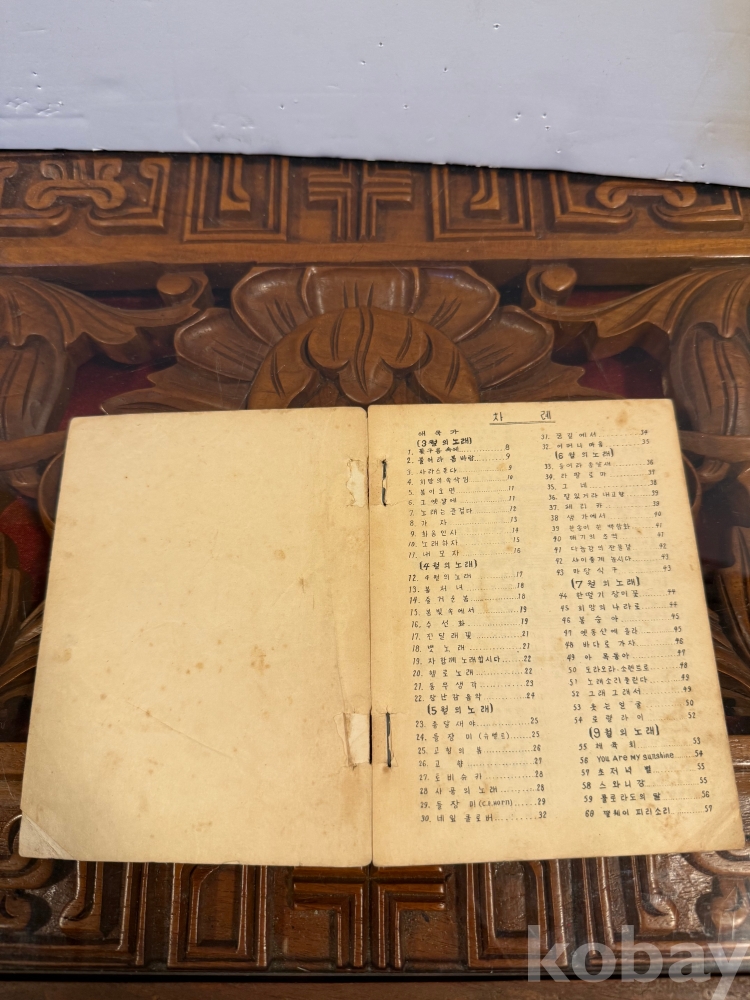 차 례
애 국 가
(3월의 노래)
1. 흰구름 속에 8
2. 불어라 봄바람 9
3. 사라스폰다 9
4. 희망의 속삭임 10
5. 봄이오면 11
6. 그 옛날에 11
7. 노래는 즐겁다 12
8. 가 자 13
9. 처음인사 15
10. 노래하자 15
11. 내 모 자 16
(4월의 노래)
12. 4월의 노래 17
13. 봄 처 녀 18
14. 즐거운 봄 18
15. 봄빛 속에서 19
16. 수 선 화 19
17. 진 달 래 꽃 21
18. 뱃 노 래 21
19. 다함께 노래합시다 22
20. 헬로 노래 22
21. 동무 생각 23
22. 장난감 음악 24
(5월의 노래)
23. 종달새야 25
24. 들 장 미 (슈벨트) 25
25. 고향의 봄 26
26. 고 향 27
27. 로비슈카 28
28 사 공 의 노 래 28
29. 들 장 미 (C.E.HORN) 29
30. 네잎 클로버 32
31. 꽃길에서 34
32. 어머니 마음 35
(6월의 노래)
33. 36
34. 라 팔 로 마 36
35. 그 네 38
36. 잘있거라 내고향 39
37. 메 리 카 39
38 샘 가에서 40
39. 한송이 흰 백합화 41
40 메기의 추억 41
41 다뉴강의 잔물결 42
42 사이좋게 놉시다 43
43 파랑 식구 43
(7월의 노래)
44 한떨기 장미꽃 44
45 희망의 나라로 44
46 봉 숭 아 45
47 옛동산에 올라 45
48 바다로 가자 46
49 아 목동아 47
50 도라오라 소렌토로 48
51 노래소리 들린다 49
52 그래 그래서 49
53 웃는 얼굴 50
54 로 렐 라 이 52
(9월의 노래)
55 체 육 회 53
56 YOU ARE MY SUNSHINE 54
57 초저녁 별 55
58 스와니강 55
59 콜로라도의 달 56
60 피리소리 57
kobay